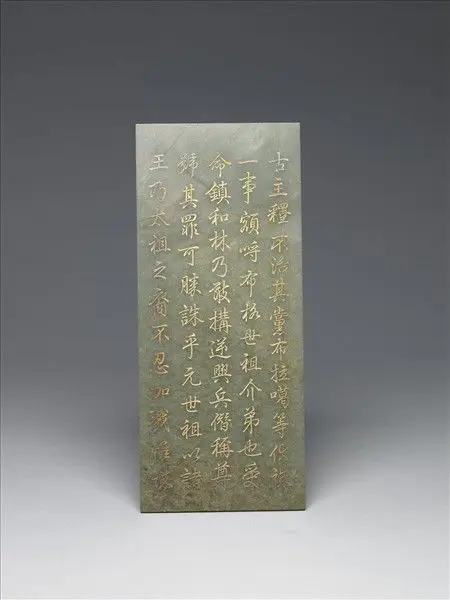 古主釋不治其黨布拉噶等伏誅
一事額哷布格世祖介弟也受
命鎮和林乃敢搆逆興兵僭稱尊
號其罪可勝誅乎元世祖以諸
王乃太祖之裔不忍加戮惟誅